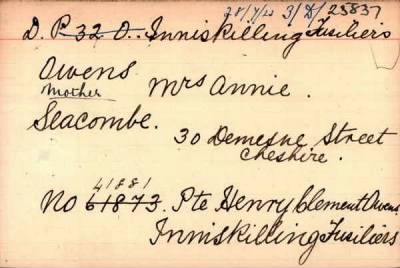 28/4/21 3/D/25837
D. P 32 O. Inniskilling Fusiliers
Owens
Mother Mrs Annie.
Seacombe.
30 Demesne Street
Cheshire.
41881
No 61873. Pte Henry Clement Owens
Inniskilling Fusiliers